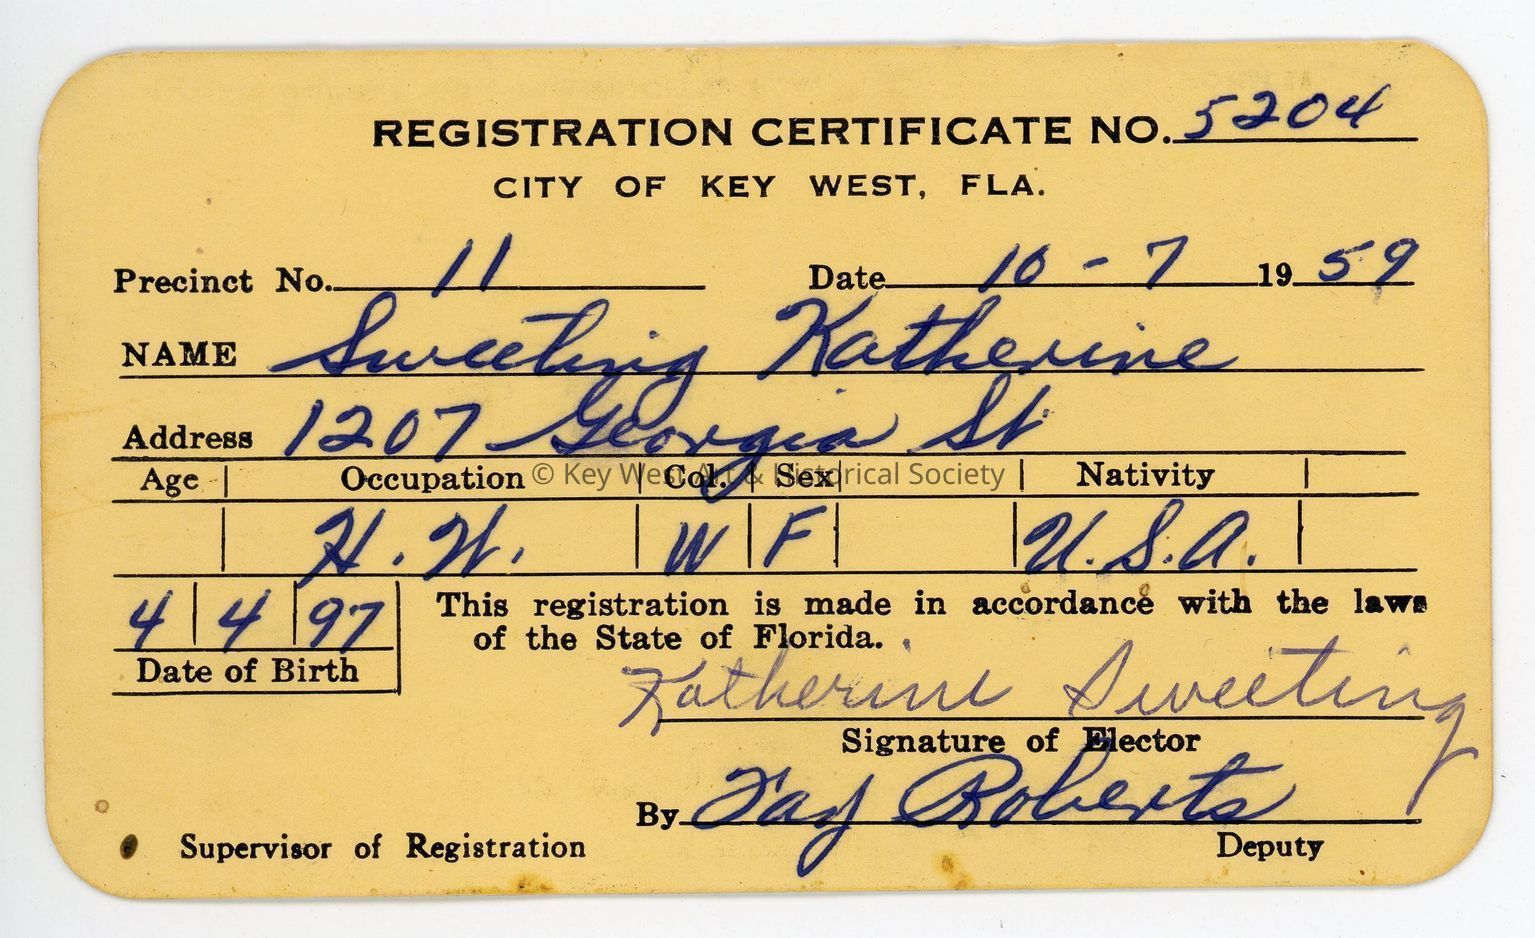 REGISTRATION CERTIFICATE NO. 5204
CITY OF KEY WEST, FLA.
Precinct No. 11 Date 10-7 1959
NAME Sweeting Katherine
Address 1207 Georgia St
Age Occupation Col. Sex Nativity
© Key West Art & Historical Society
H. W. W F U.S.A.
4 4 97 This registration is made in accordance with the laws
of the State of Florida.
Date of Birth
Katherine Sweeting
Signature of Elector
By Fay Roberts
Supervisor of Registration Deputy